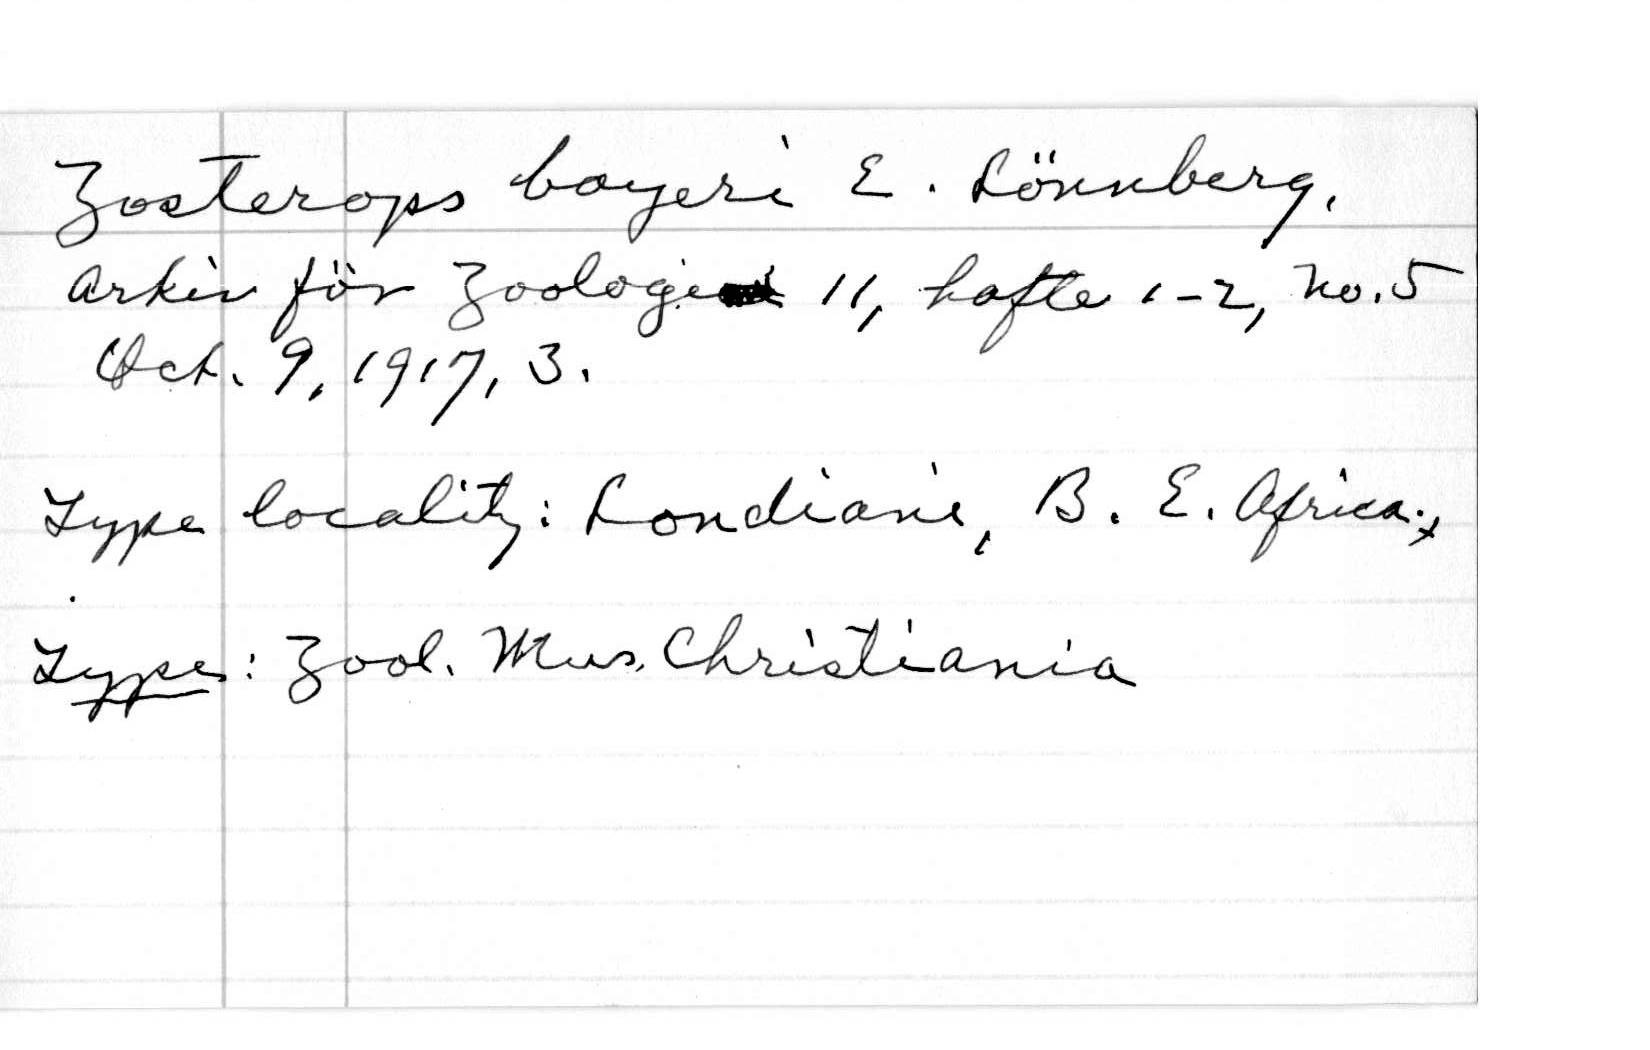 Zosterops bayeri E. Lönnberg,
Arkiv för Zoologi 11, hafte 1-2, No. 5
Oct. 9, 1917, 3.
Type locality: Londiani, B. E. Africa.
Type: Zool. Mus. Christiania